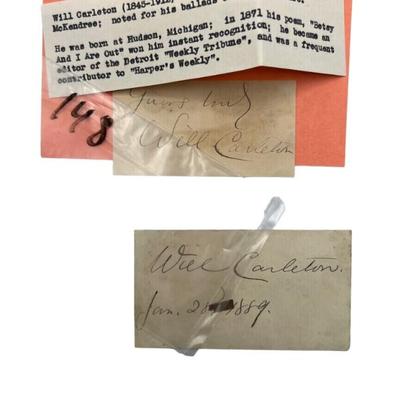 Will Carleton (1845-1912)
McKendree; noted for his ballads
He was born at Hudson, Michigan; in 1871 his poem, "Betsy
And I Are Out" won him instant recognition; he became an
editor of the Detroit "Weekly Tribune", and was a frequent
contributor to "Harper's Weekly".
148
Yours truly
Will Carleton
Will Carleton.
Jan. 28 1889.